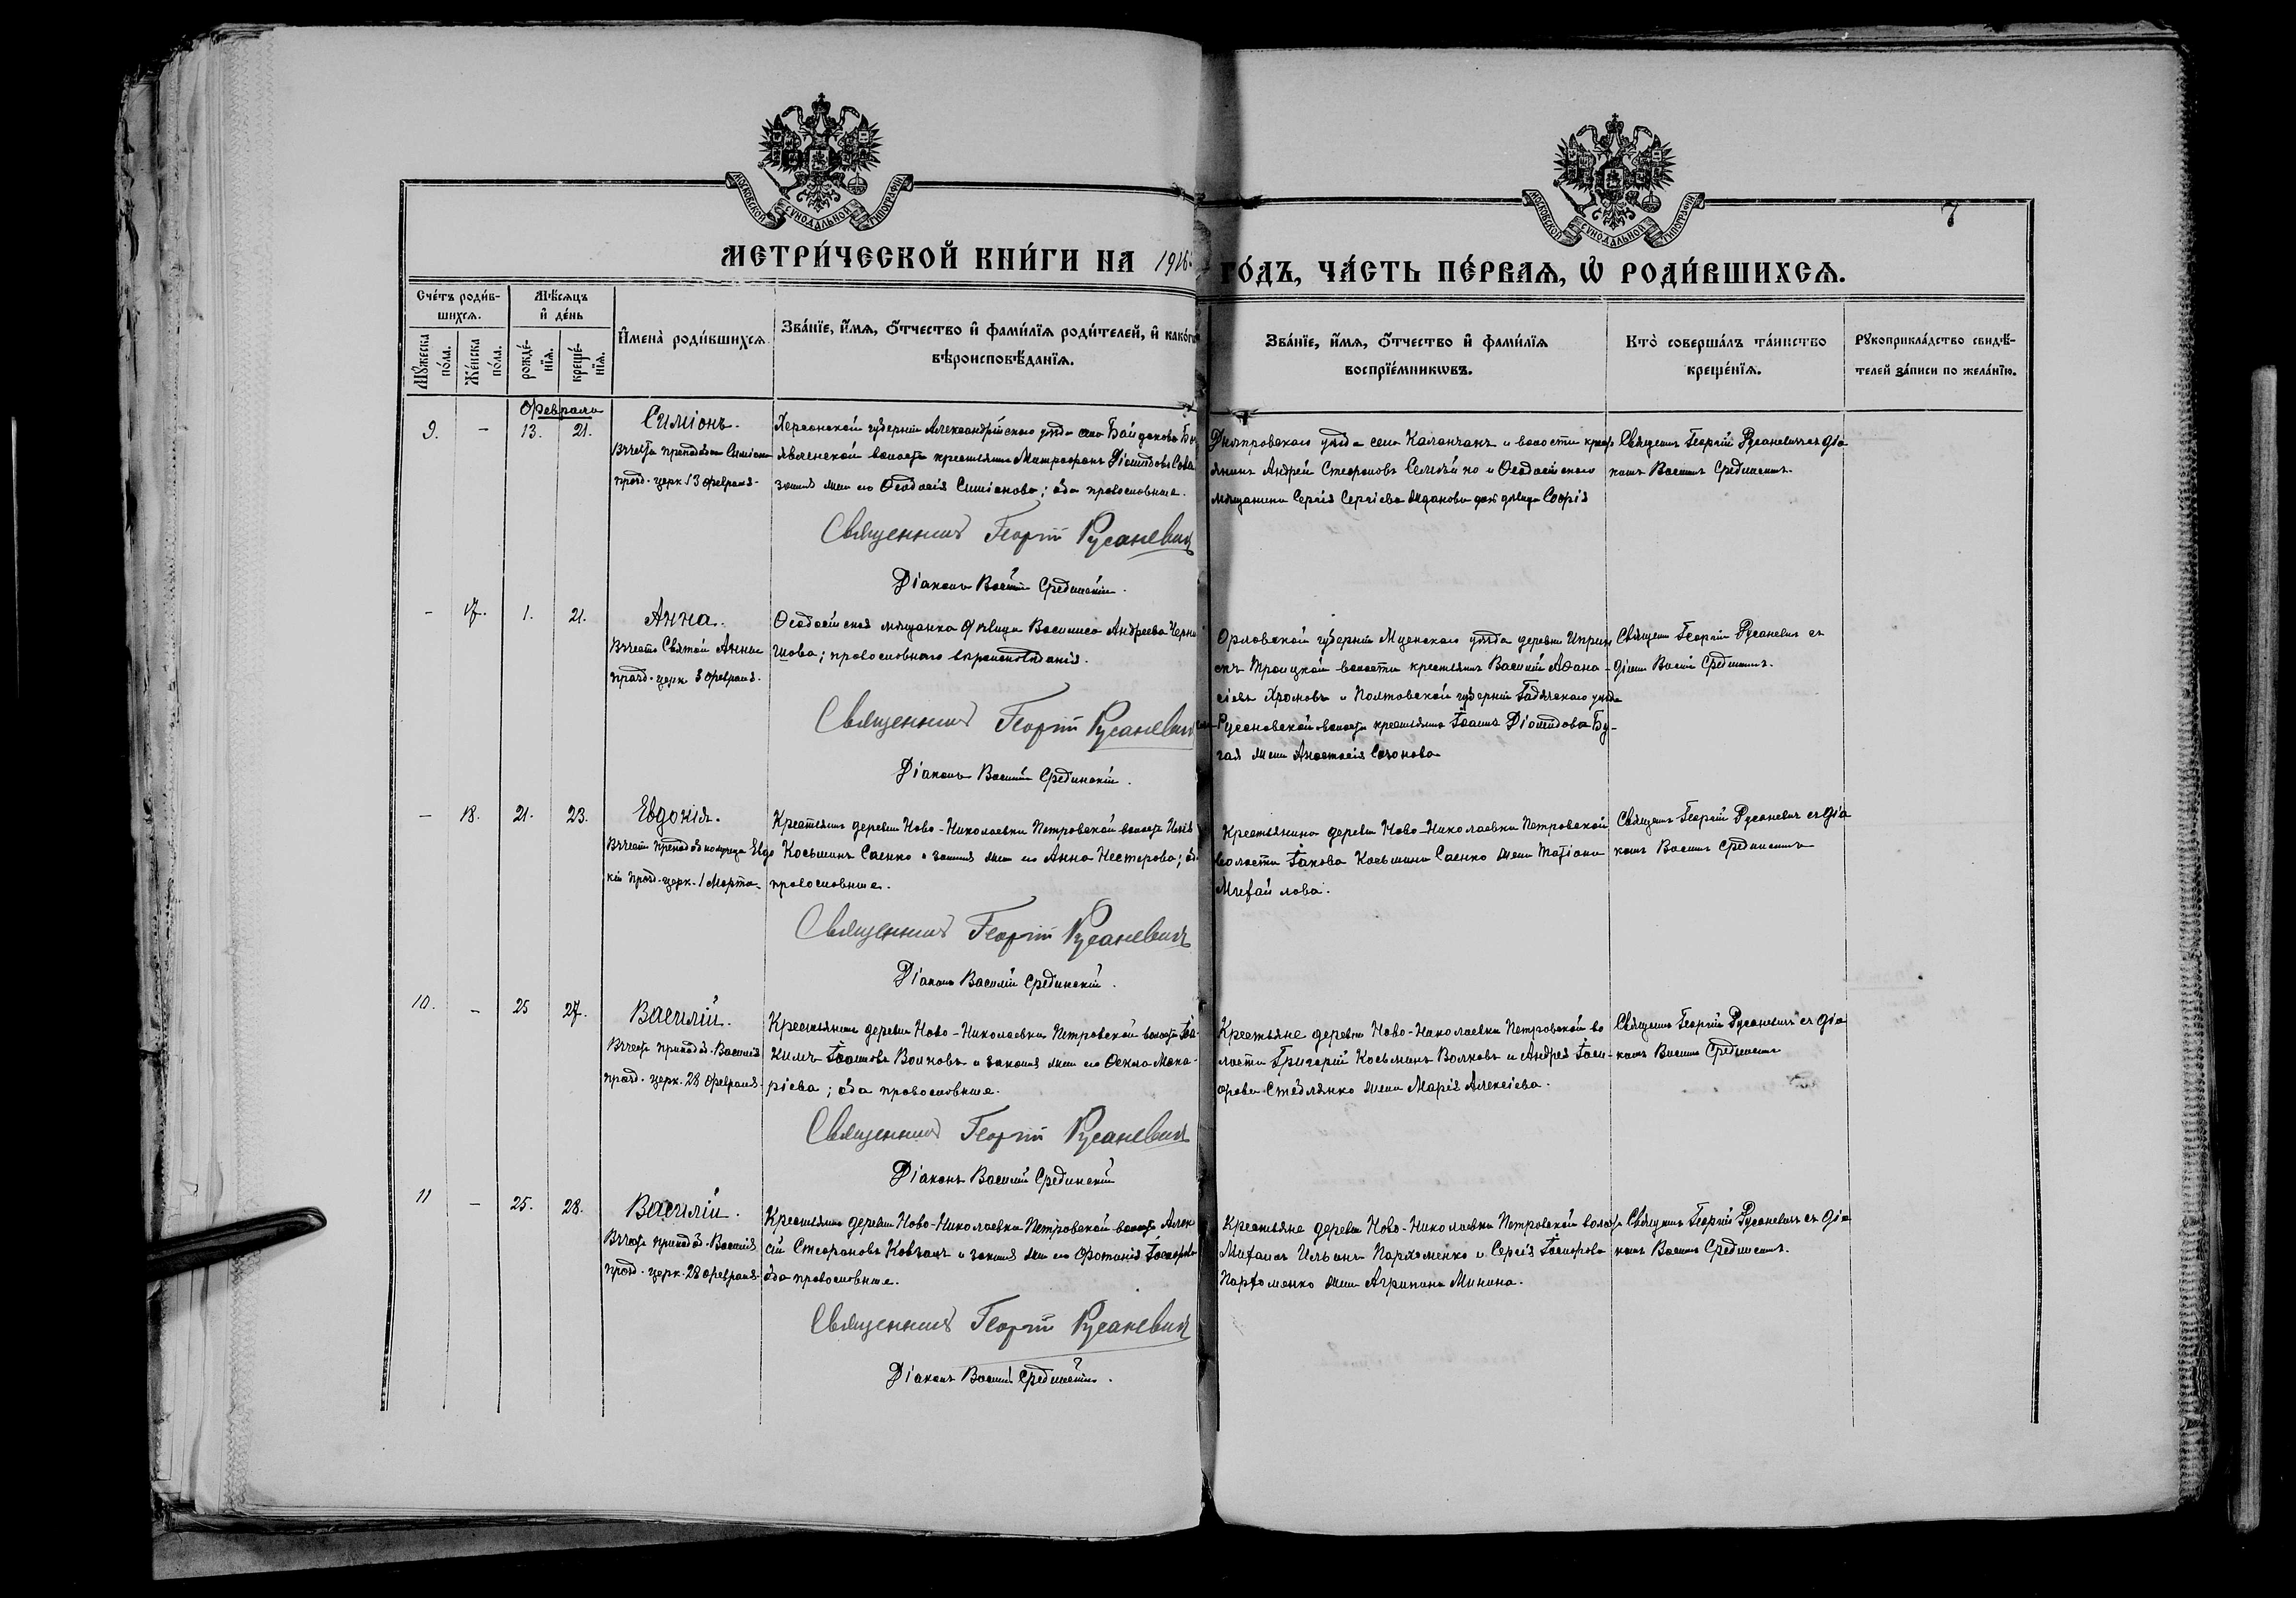 МОСКОВСКОЙ СѴНОДАЛЬНОЙ ТИПОГРАФІИ
МОСКОВСКОЙ СѴНОДАЛЬНОЙ ТИПОГРАФІИ
7
МЕТРИ́ЧЕСКОЙ КНИ́ГИ НА 1916
ГО́ДЪ, ЧА́СТЬ ПЕ́РВАѦ, Ѡ҆ РОДИ́ВШИХСѦ.
Сче́тъ роди́в-
шихсѧ.
Мꙋ́жеска по́ла.
Же́нска по́ла.
Мѣ́сѧцъ
и҆ де́нь
рожде́-
нїѧ.
креще́-
нїѧ.
И҆мена̀ роди́вшихсѧ
Зва́нїе, и҆́мѧ, ѻ҆́тчество и҆ фами́лїѧ роди́телей, и҆ како́гѡ
вѣроисповѣ́данїѧ.
Зва́нїе, и҆́мѧ, ѻ҆́тчество и҆ фами́лїѧ
воспрїе́мникѡвъ.
Кто̀ соверша́лъ та́инство
креще́нїѧ.
Рꙋкоприкла́дство свидѣ́-
телей за́писи по жела́нїю.
Февраля
9. - 13. 21. Симіонъ.
Въ честь преподобн Симіона
празд. церк 13 Февраля.
Херсонской губерніи Александрійскаго уѣзда села Байдакова
явленской волости крестьянинъ Митрофанъ Діомидовъ Сова
законая жена его Ѳеодосія Симіонова; оба православные.
Священникъ Георгій Русаневич
Діаконъ Василій Срединскій.
Днѣпровскаго уѣзда села Каланчакъ и волости крест
янинъ Андрей Стефановъ и Ѳеодосійскаго
мѣщанина Сергія Сергіева Жданова дочь дѣвица Софія
Священ Георгій Русаневичъ съ діа
кономъ Василіемъ Срединскимъ.
- 17. 1. 21. Анна.
Въ честь Святой Анны
празд. церк 3 Февраля.
Ѳеодосійская мѣщанка дѣвица Василиса Андреева Черны
шова; православнаго вѣроисповѣданія.
Священникъ Георгій Русаневич
Діаконъ Василій Срединскій.
Орловской губерніи Мценскаго уѣзда деревни
Троицкой волости крестьянинъ Василій Аѳана-
сіевъ Хромовъ и Полтавской губерніи Гадячскаго уѣзда
Русановской волости крестьянина Іоанна Діомидова Бу-
гая жена Анастасія Сазонова
Священ Георгій Русаневич съ
діакон Василіе Срединскимъ.
- 18. 21. 23. Евдокія.
Въ честь препод муч Евдо
кіи празд. церк. 1 Марта
Крестьянинъ деревни Ново-Николаевки Петровской волости Илія
Косьминъ Саенко и законая жена его Анна Нестерова; оба
православные.
Священникъ Георгій Русаневичъ
Діаконъ Василій Срединскій.
Крестьянина деревни Ново-Николаевки Петровской
волости Іакова Косьмина Саенко жена Татіана
Михайлова.
Священ Георгій Русаневич съ діа
кономъ Василіемъ Срединскимъ
10. - 25 27. Василій.
Въ честь преподоб. Василія
празд. церк. 28 Февраля.
Крестьянинъ деревни Ново-Николаевки Петровской волости Іоа-
кимъ Іоанновъ Волковъ и законая жена его Ѳекла Мака-
ріева; оба православные.
Священникъ Георгій Русаневич
Діаконъ Василій Срединскій
Крестьяне деревни Ново-Николаевки Петровской во
лости Григорій Косьминъ Волковъ и Андрея Іоси-
фова Стеблянко жена Марія Алексіева.
Священ Георгій Русаневичъ съ діа
кономъ Василіемъ Срединскимъ
11 - 25. 28. Василій.
Въ честь преподоб. Василія
празд. церк. 28 Февраля
Крестьянинъ деревни Ново-Николаевки Петровской волости Алек
сій Стефановъ Ковганъ и законая жена его Фотинія Іосифова
оба православные.
Священникъ Георгій Русаневич
Діаконъ Василій Срединскій.
Крестьяне деревни Ново-Николаевки Петровской волости
Михаилъ Ильинъ Пархоменко и Сергія Іосифова
Пархоменко жена Агрипина Минина.
Священ Георгій Русаневичъ съ діа
кономъ Василіемъ Срединскимъ.